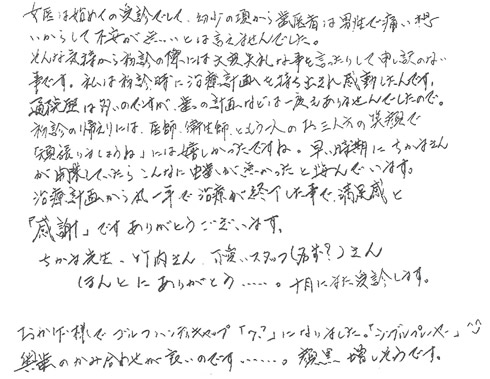 女医は始めての受診でして、幼少の頃から歯医者は男性で痛い想
いからして不安が無いとは言えませんでした。
そんな気持から初診の際には大変失礼な事を言ったりして申し訳のない
事です。私は初診時に治療計画を持ち出され感動したんです。
通院歴は多いのですが、歯の計画などは一度もありませんでしたので。
初診の帰えりには、医師、衛生師、ともう一人のお三人方の笑顔で
「頑張りましょうね」には嬉しかったですね。早い時期にちかまさん
が開業していたらこんなに虫歯が無かったと悔んでいます。
治療計画から凡一年で治療が終了した事で、満足感と
「感謝」です ありがとうございます。
ちかま先生、竹内さん、可愛いスタッフ(名まえ?)さん
ほんとにありがとう……。十月にまた受診します。
おかげ様でゴルフハンディキャップ「7.?」になりました。「シングルプレーヤー」^^
奥歯のかみ合わせが良いのです……。顔黒増しそうです。